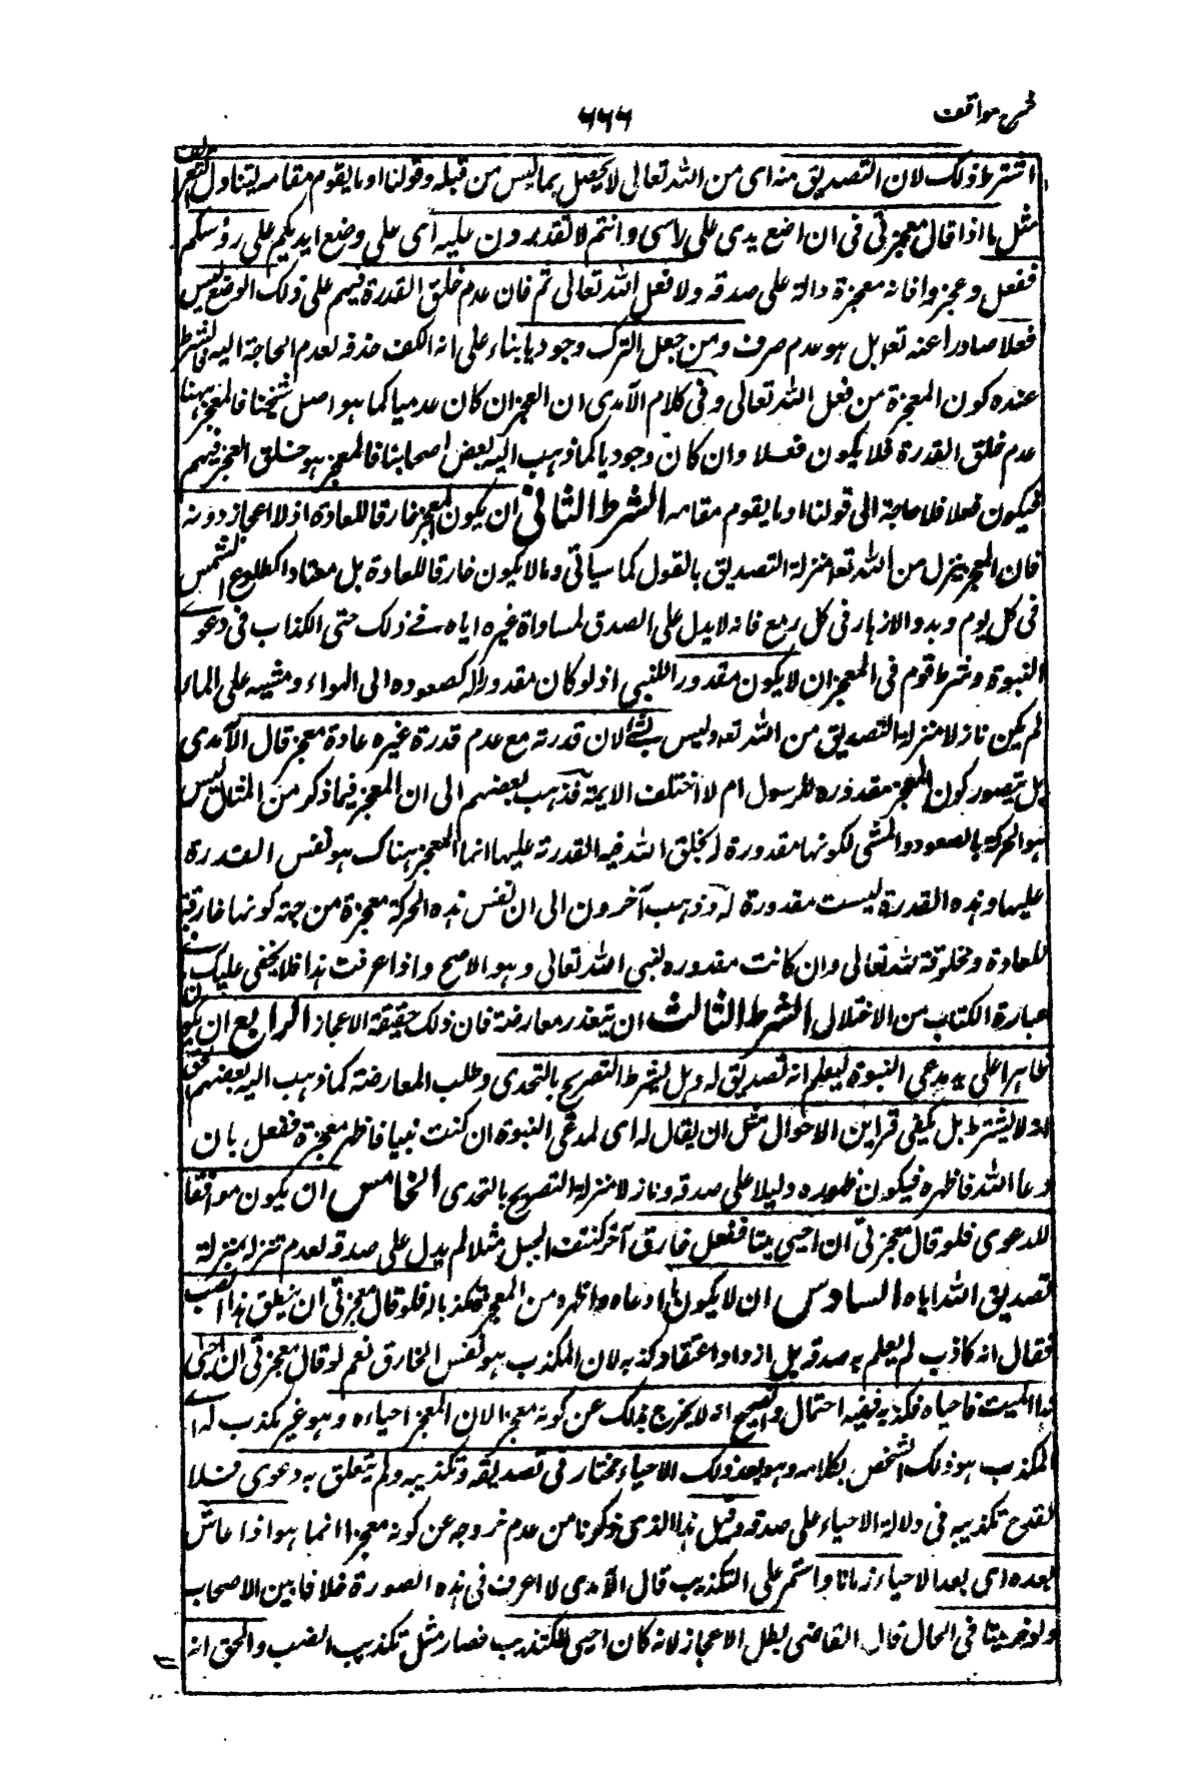 شرح مواقف
٦٦٦
اشترط ذلك لان التصديق منه اى من الله تعالى لا يحصل بما ليس من قبله وقولنا او ما يقوم مقامه ليتناول التعريف
مثل ما اذا قال معجزتى فى ان اضع يدى على راسى وانتم لا تقدرون عليه اى على وضع ايديكم على رؤسكم
ففعل وعجزوا فانه معجزة دالة على صدقه ولا فعل لله تعالى ثم فان عدم خلق القدرة فيهم على ذلك الوضع ليس
فعلا صادرا عنه تعالى بل هو عدم صرف ومن جعل الترك وجوديا بناء على انه الكف حذفه لعدم الحاجة اليه فالشرط
عنده كون المعجزة من فعل الله تعالى وفى كلام الآمدى ان العجز ان كان عدميا كما هو اصل شيخنا فالمعجز ههنا
عدم خلق القدرة فلا يكون فعلا وان كان وجوديا كما ذهب اليه بعض اصحابنا فالمعجز هو خلق العجز فيهم
فيكون فعلا فلا حاجة الى قولنا او ما يقوم مقامه الشرط الثانى ان يكون المعجز خارقا للعادة اذ لا اعجاز دونه
فان المعجز ينزل من الله تعه منزلة التصديق بالقول كما سياتى وما لا يكون خارقا للعادة بل معتادا كطلوع الشمس
فى كل يوم وبدو الازهار فى كل ربيع فانه لا يدل على الصدق لمساواة غيره اياه فى ذلك حتى الكذاب فى دعوى
النبوة وشرط قوم فى المعجز ان لا يكون مقدورا للنبى اذ لو كان مقدورا له كصعوده الى الهواء ومشيه على الماء
لم يكن نازلا منزلة التصديق من الله تعه وليس بشئ لان قدرته مع عدم قدرة غيره عادة معجز قال الآمدى
هل يتصور كون المعجز مقدوره للرسول ام لا اختلف الايمة فذهب بعضهم الى ان المعجز فيما ذكر من المثال ليس
هو الحركة بالصعود والمشى لكونها مقدورة له بخلق الله فيه القدرة عليها انما المعجز هناك هو نفس القدرة
عليها وهذه القدرة ليست مقدورة له وذهب آخرون الى ان نفس هذه الحركة معجزة من جهة كونها خارقة
للعادة ومخلوقة لله تعالى وان كانت مقدوره لنبى الله تعالى وهو الاصح واذا عرفت هذا فلا يخفى عليك ما فى
عبارة الكتاب من الاختلال الشرط الثالث ان يتعذر معارضة فان ذلك حقيقة الاعجاز الرابع ان يكون
ظاهرا على يد مدعى النبوة ليعلم انه تصديق له وهل يشرط التصريح بالتحدى وطلب المعارضة كما ذهب اليه بعضهم الحق
انه لا يشترط بل يكفى قراين الاحوال مثل ان يقال له اى لمدعى النبوة ان كنت نبيا فاظهر معجزة ففعل بان
دعا الله فاظهره فيكون ظهوره دليلا على صدقه ونازلا منزلة التصريح بالتحدى الخامس ان يكون موافقا
للدعوى فلو قال معجزتى ان احيى ميتا ففعل خارق آخر كنتق الجبل مثلا لم يدل على صدقه لعدم تنزله منزلة
تصديق الله اياه السادس ان لا يكون ما ادعاه واظهره من المعجزة مكذبا له فلو قال معجزتى ان ينطق هذا الضب
فقال انه كاذب لم يعلم به صدقه بل ازداد اعتقاد كذبه لان المكذب هو نفس الخارق نعم لو قال معجزتى ان احيى
هذا الميت فاحياه فكذبه ففيه احتمال والصحيح انه لا يخرج بذلك عن كونه معجزا لان المعجز احياءه وهو غير مكذب له انما
المكذب هو ذلك الشخص بكلامه وهو بعد ذلك الاحياء مختار فى تصديقه وتكذيبه ولم يتعلق به دعوى فلا
يقدح تكذيبه فى دلالة الاحياء على صدقه وقيل هذا الذى ذكرنا من عدم خروجه عن كونه معجزا انما هو اذا عاش
بعده اى بعد الاحياء زمانا واستمر على التكذيب قال الآمدى لا اعرف فى هذه الصورة خلافا بين الاصحاب
ولو خر ميتا فى الحال قال القاضى بطل الاعجاز لانه كان احيى للتكذيب فصار مثل تكذيب الضب والحق انه